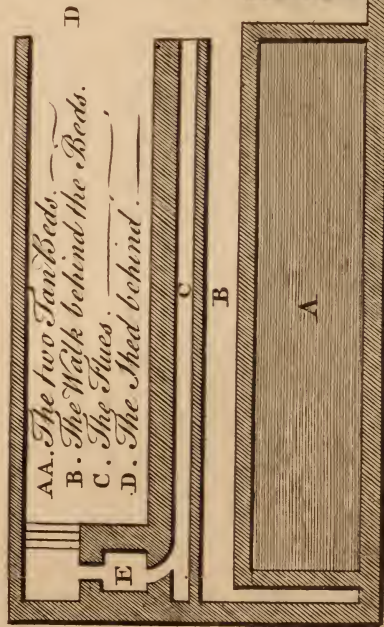 D
AA. The two Tan Beds.
B. The Walk behind the Beds.
C. The Flues.
D. The Shed behind.
E
C
B
A